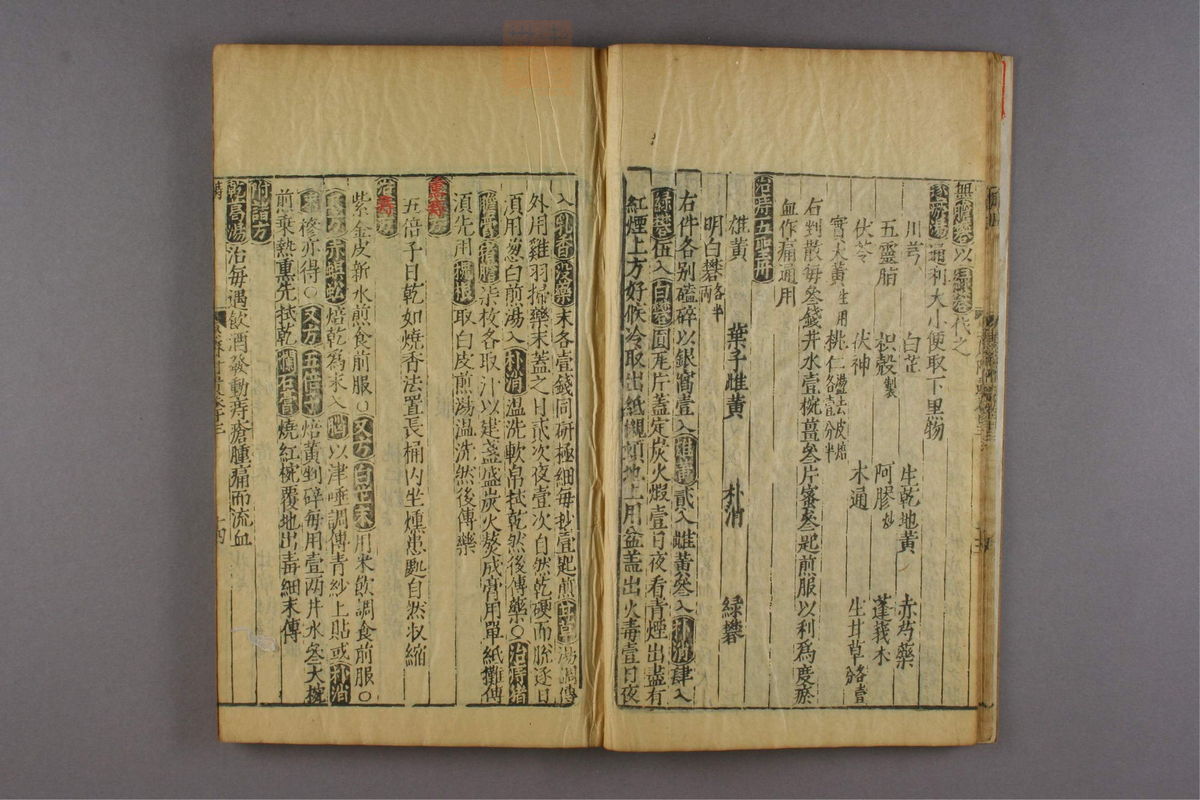 無膽礬以綠礬代之
逐瘀湯通利大小便取下里物
川芎 白芷 生乾地黃 赤芍藥
五靈脂 枳殼製 阿膠炒 蓬莪朮
茯苓 茯神 木通 生甘草各壹分
實大黃生用 桃仁盪去皮焙各壹分半
右剉散每叄錢井水壹椀薑叄片蜜叄匙煎服以利爲度瘀
血作痛通用
治痔五正丹
雄黃 葉子雌黃 朴消 綠礬
明白礬各半兩
右件各别磕碎以銀窩壹入雄黃貳入雌黃叄入朴消肆入
綠礬伍入白礬圓瓦片蓋定炭火煆壹日夜看青煙出盡有
紅煙上方好候冷取出紙襯頓地上用盆盖出火毒壹日夜
入乳香沒藥末各壹錢同研極細每抄壹匙煎甘草湯調傅
外用雞羽掃藥末蓋之日貳次夜壹次自然乾硬而脫逐日
須用葱白煎湯入朴消溫洗軟帛拭乾然後傅藥○治痔猪
膽膏猪膽柒枚各取汁以建盞盛炭火熬成膏用單紙攤傅
須先用槐根取白皮煎湯温洗然後傅藥
熏痔方
五倍子日乾如燒香法置長桶內坐燻患處自然收縮
治方
紫金皮新水煎食前服○又方白芷末用米飮調食前服○
又方赤蜈蚣焙乾爲末入腦以津唾調傅青紗上貼或朴消
末摻亦得○又方五倍子焙黃剉碎每用壹兩井水叄大椀
煎乗熱熏先拭乾爛石膏燒紅椀覆地出毒細末傅
附諸方
乾葛湯治每遇飮酒發動痔瘡腫痛而流血